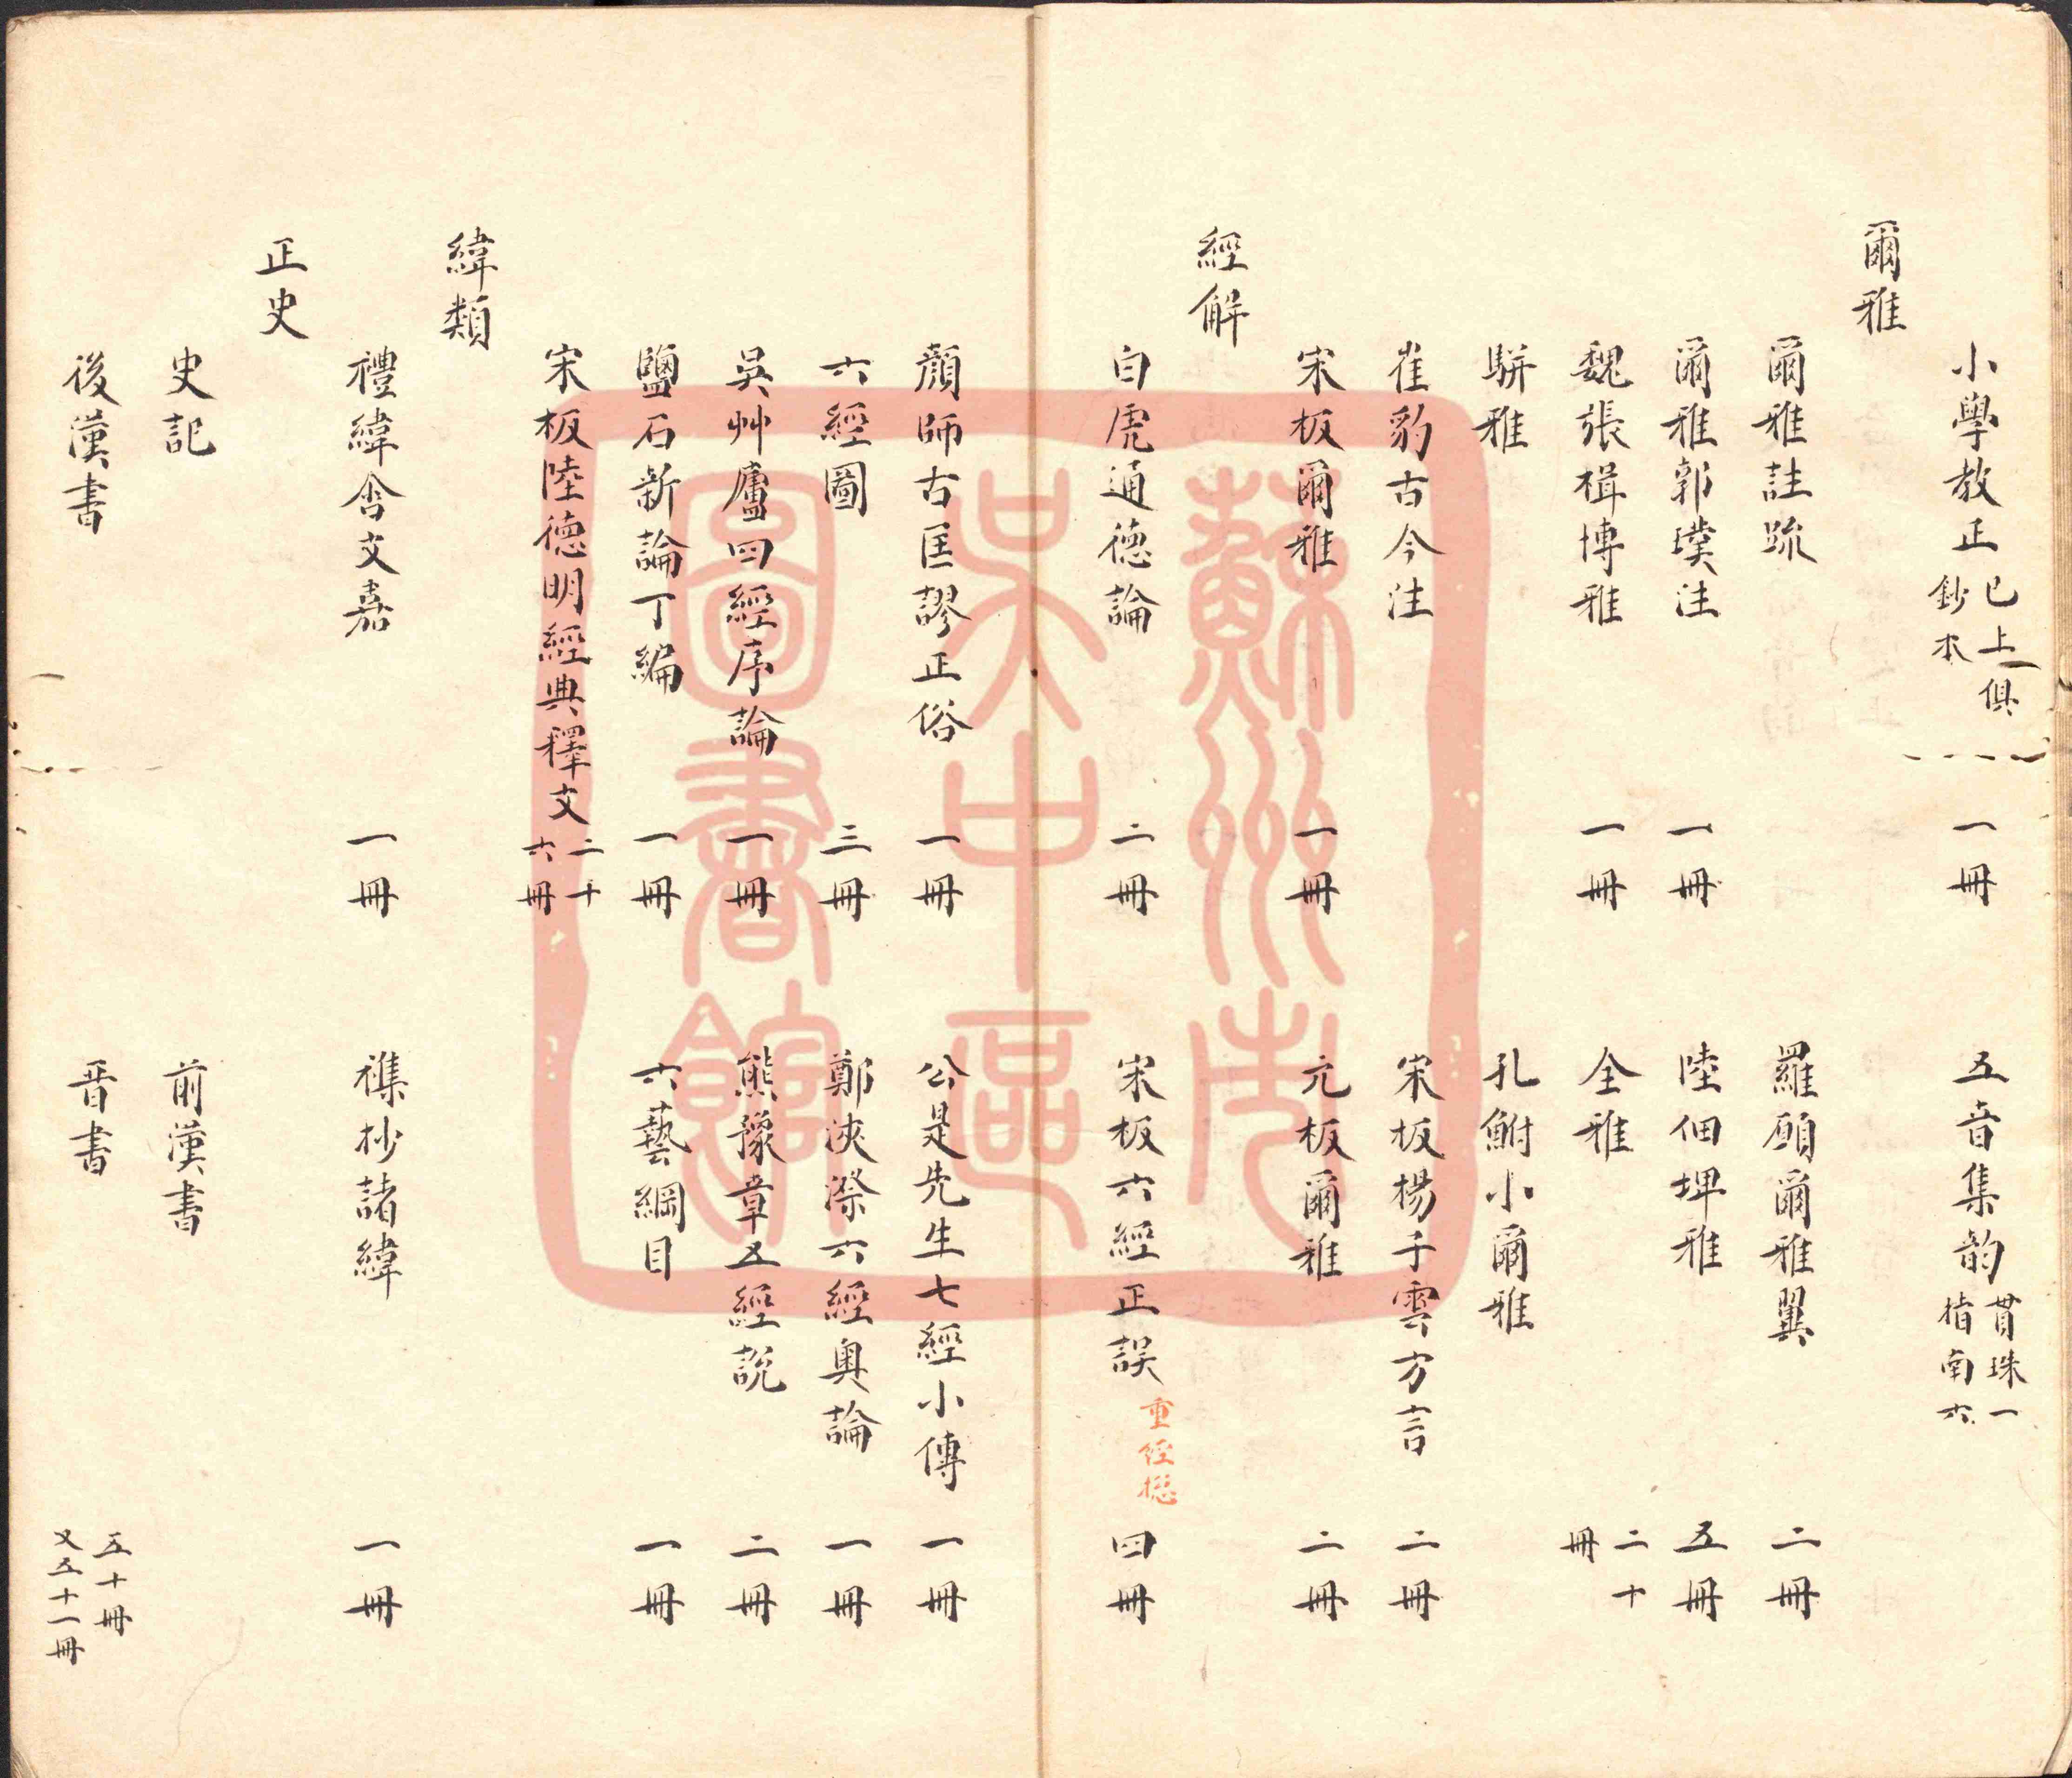 小學教正 已上俱鈔本 一冊 五音集韵 貫珠一指南六
爾雅
爾雅註疏 羅願爾雅翼 二冊
爾雅郭璞注 一冊 陸佃埤雅 五冊
魏張楫博雅 一冊 全雅 二十冊
駢雅 孔鮒小爾雅
崔豹古今注 宋板楊子雲方言 二冊
宋板爾雅 一冊 元板爾雅 二冊
經解
白虎通德論 二冊 宋板六經正誤 重經總 四冊
顏師古匡謬正俗 一冊 公是先生七經小傳 一冊
六經圖 三冊 鄭浹漈六經奧論 一冊
吳艸廬四經序論 一冊 熊豫章五經說 二冊
鹽石新論丁編 一冊 六藝綱目 一冊
宋板陸德明經典釋文 二十六冊
緯類
禮緯含文嘉 一冊 襍抄諸緯 一冊
正史
史記 前漢書
後漢書 晉書 五十冊又五十一冊
蘇州市
吴中區
圖書館